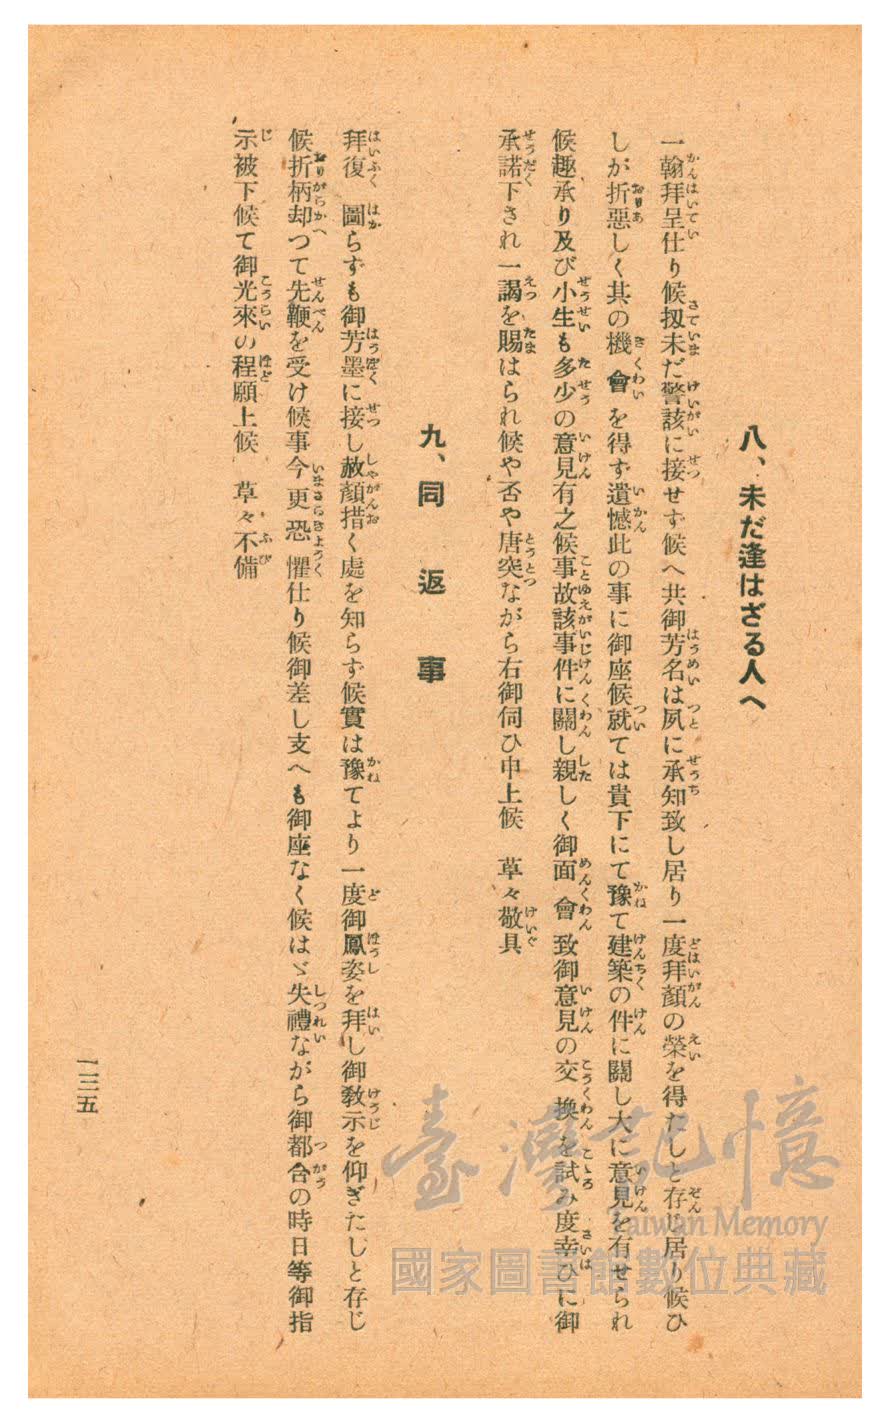 八、未だ逢はざる人へ
一翰拜呈仕り候扨未だ警該に接せず候へ共御芳名は夙に承知致し居り一度拜顔の榮を得たしと存じ居り候ひ
しが折惡しく其の機會を得ず遺憾此の事に御座候就ては貴下にて豫て建築の件に關し大に意見を有せられ
候趣承り及び小生も多少の意見有之候事故該事件に關し親しく御面會致御意見の交換を試み度幸ひに御
承諾下され一謁を賜はられ候や否や唐突ながら右御伺ひ申上候　草々敬具
九、同返事
拜復　圖らずも御芳墨に接し赦顔措く處を知らず候實は豫てより一度御鳳姿を拜し御敎示を仰ぎたしと存じ
候折柄却つて先鞭を受け候事今更恐懼仕り候御差し支へも御座なく候はゞ失禮ながら御都合の時日等御指
示被下候て御光來の程願上候　草々不備
一三五
臺灣記憶
Taiwan Memory
國家圖書館數位典藏